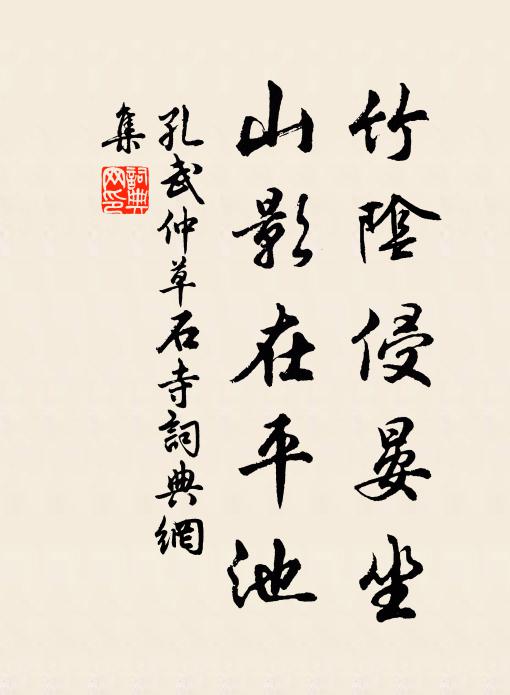 竹陰侵晏坐
山影在平池
孔武仲草石寺詞典網
集
詞典網印